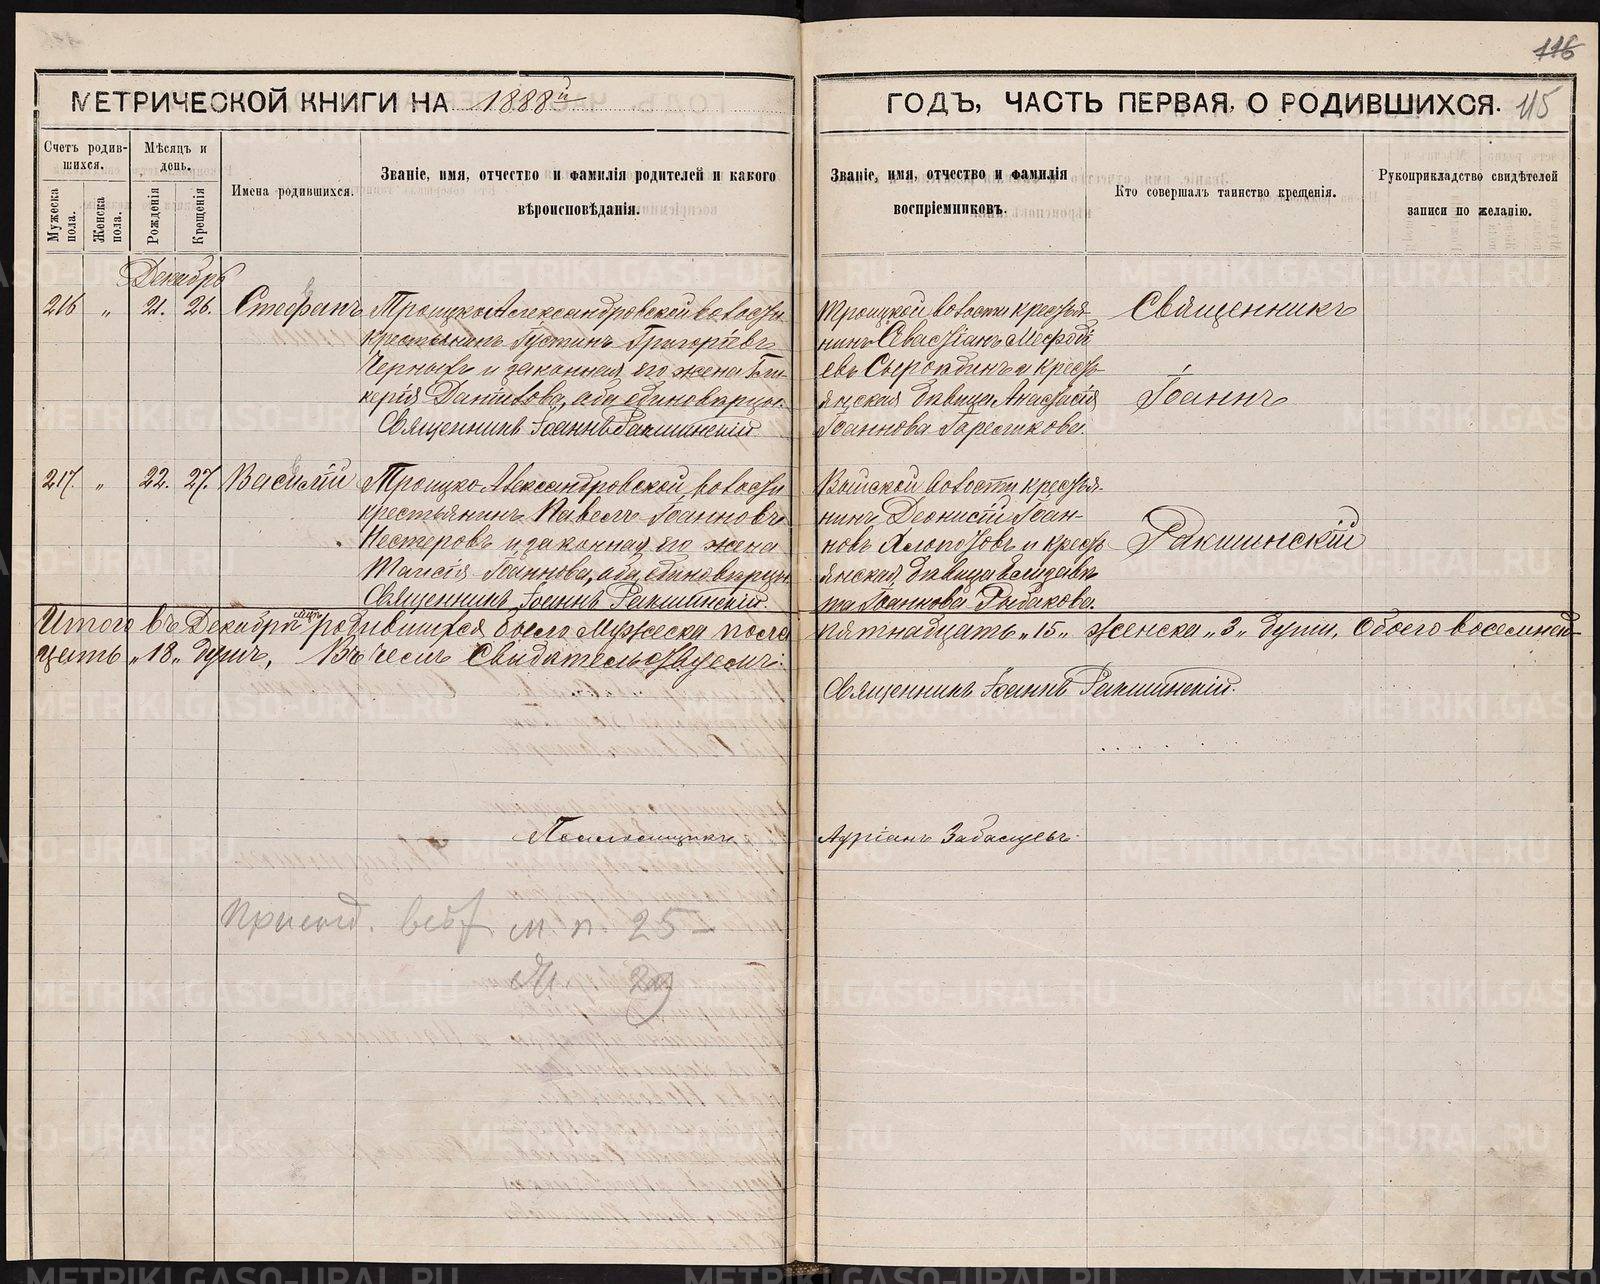 116
МЕТРИЧЕСКОЙ КНИГИ НА 1888й
ГОДЪ, ЧАСТЬ ПЕРВАЯ, О РОДИВШИХСЯ. 115
Счетъ родив-
шихся.
Мужеска пола.
Женска пола.
Мѣсяцъ и
день.
Рожденія
Крещенія
Имена родившихся.
Званіе, имя, отчество и фамилія родителей и какого
вѣроисповѣданія.
Званіе, имя, отчество и фамилія
воспріемниковъ.
Кто совершалъ таинство крещенія.
Рукоприкладство свидѣтелей
записи по желанію.
Декабрь
216 „ 21. 26. Стефанъ
Троицко Александровской волости
крестьянинъ Густинъ Григоріевъ
Черныхъ и законная его жена Гли-
керія Данилова, оба единоверцы.
Священникъ Іоаннъ Ракшинскій.
Троицкой волости крестья-
нинъ Севастіанъ Мефоді
евъ Сыропдинъ и кресть-
янская девица Анастасія
Іоаннова Горемыкова.
Священникъ
Іоаннъ
Ракшинскій
217. „ 22. 27. Василій
Троицко Александровской волости
крестьянинъ Павелъ Іоанновъ
Нестеровъ и законная его жена
Таисія Іоаннова, оба единоверцы
Священникъ Іоаннъ Ракшинскій.
волости крестья-
нинъ Деонисій Іоан-
новъ Холоповъ и кресть
янская девица Елизаве
та Іоаннова Рыбакова.
Итого въ Декабре мцѣ родившихся было Мужеска пола пятнадцать „15„ женска „3„ души, обоего восемнад-
цать „18„ душъ, Въ чемъ Свидетельствуемъ:
Священникъ Іоаннъ Ракшинскій.
Псаломщикъ Адріанъ
м. п. 25
29